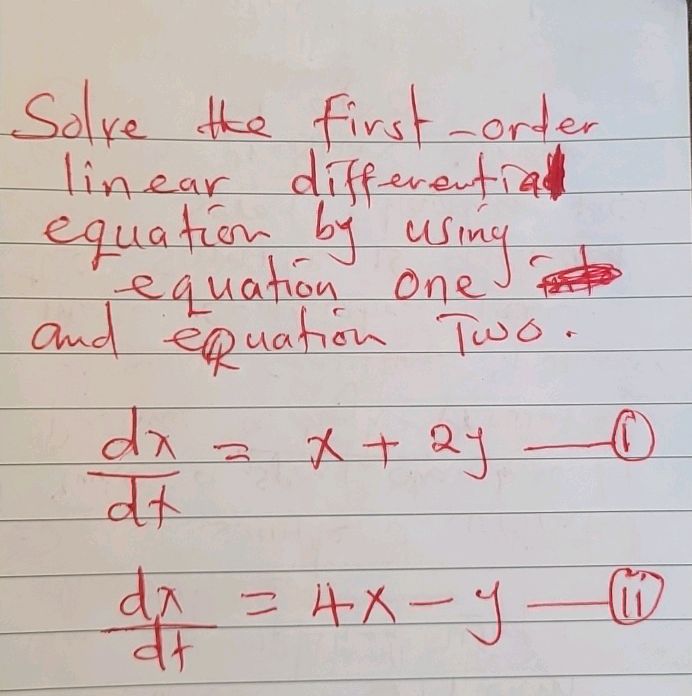 Solve the first-order
linear differential
equation by using
equation one
and equation Two.
dx/dt = x + 2y —— (i)
dx/dt = 4x - y —— (ii)